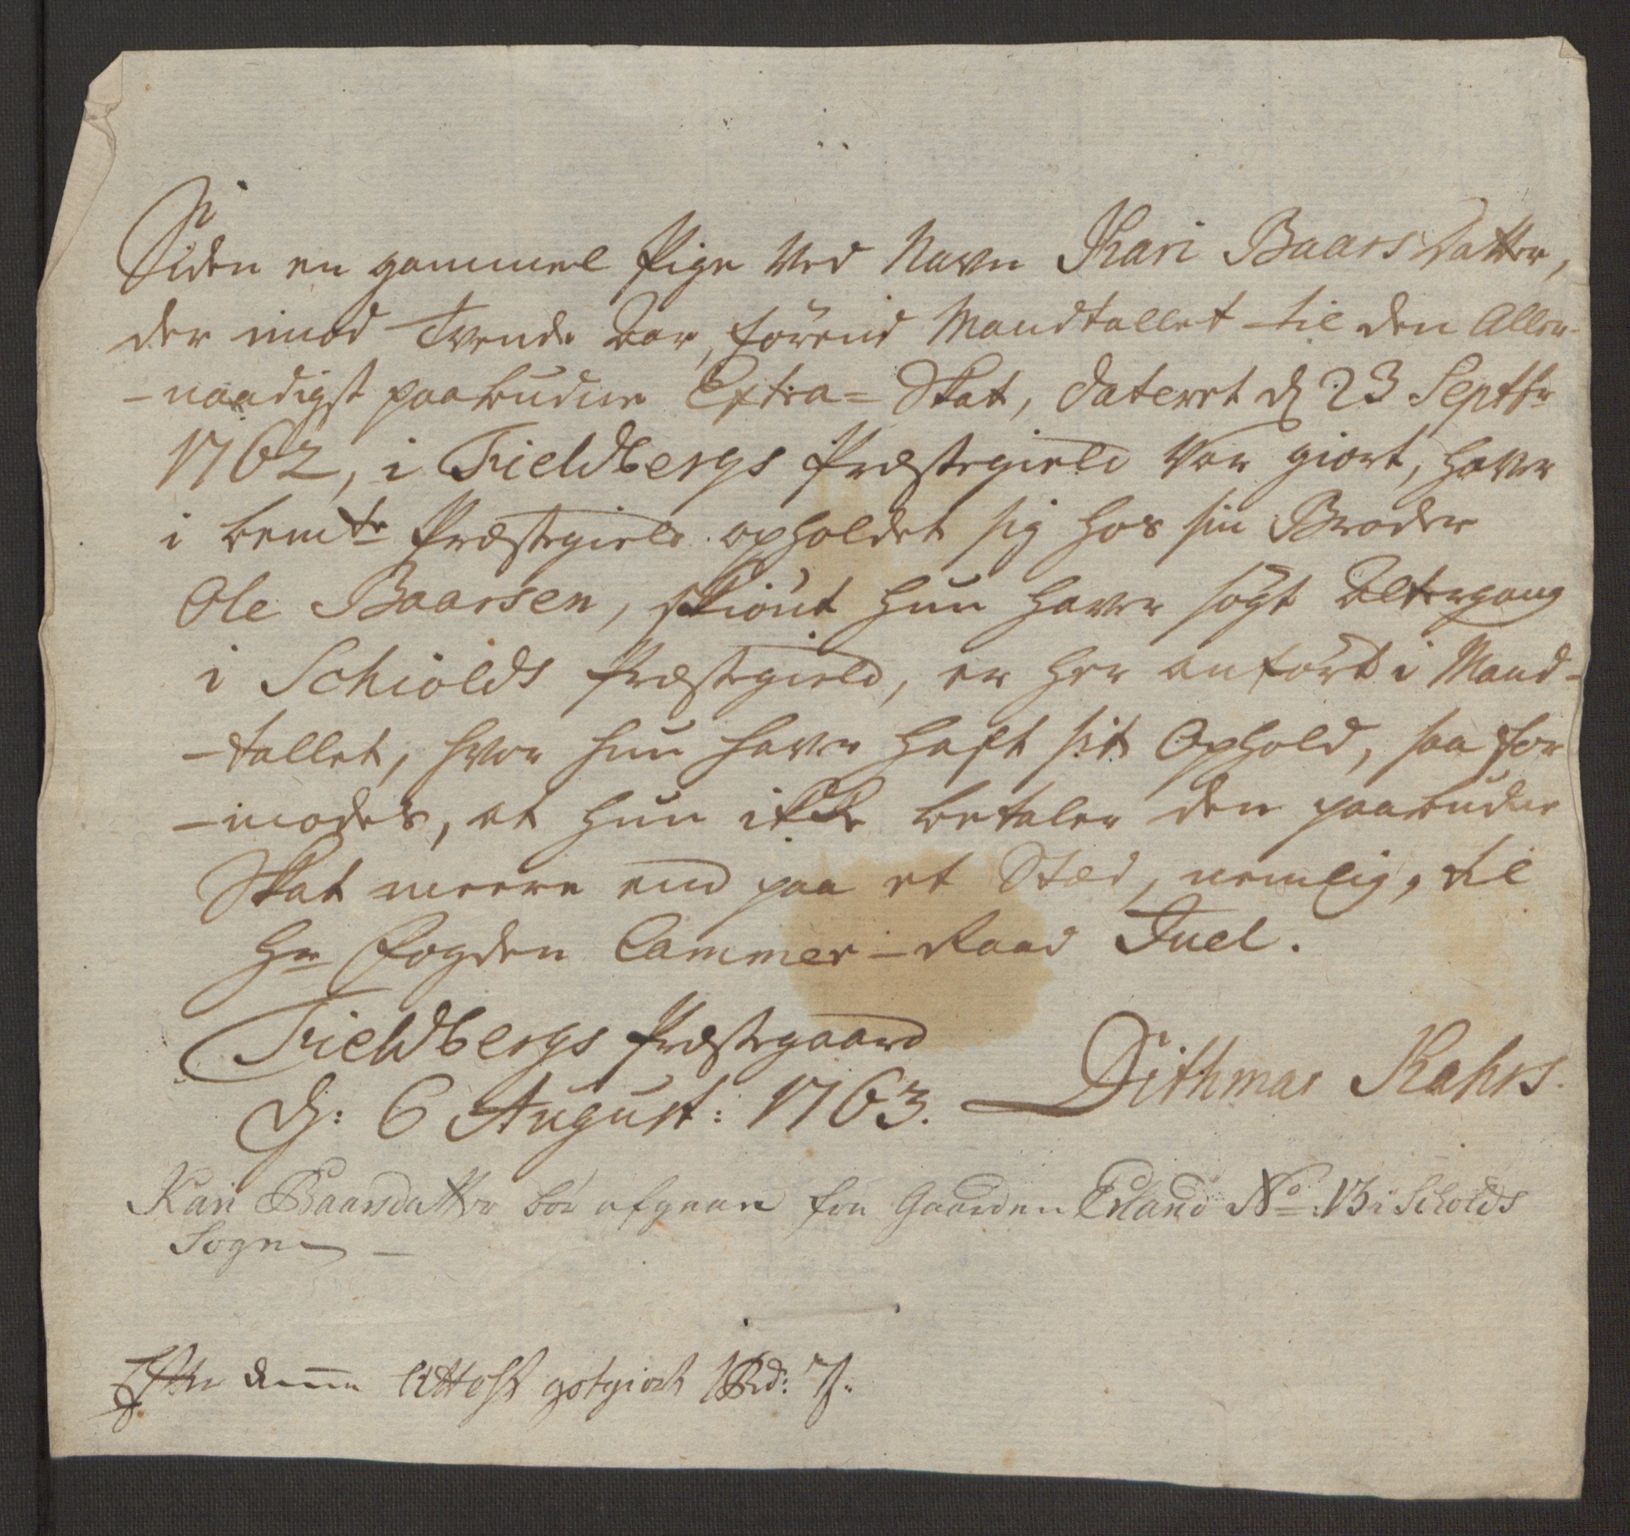 Siden en gammel Pige ved Navn Kari Baars Datter,
der imod tvende Aar, förend Mandtallet til den Aller-
-naadigst paabudne Extra-Skat, dateret d 23 Septbr
1762, i Fieldbergs Præstegield var giort, haver
i bemte Præstegield opholdet sig hos sin Broder
Ole Baarsen, skiönt hun haver sögt Altergang
i Schiolds Præstegield, er her anfört i Mand-
-tallet, hvor hun haver haft sit Ophold, saa for
-modes, at hun ikke betaler den paabudne
Skat meere end paa et Sted, nemlig, til
Hr Fogden Cammer-Raad Juel.
Fieldbergs Præstegaard
d: 6 August: 1763. Dithmar Kahrs.
Kari Baarsdatter bör afgaae fra Gaarden Erland No: 13 i Schiolds
Sogn
Efter denne Attest gotgiort 1 Rd: